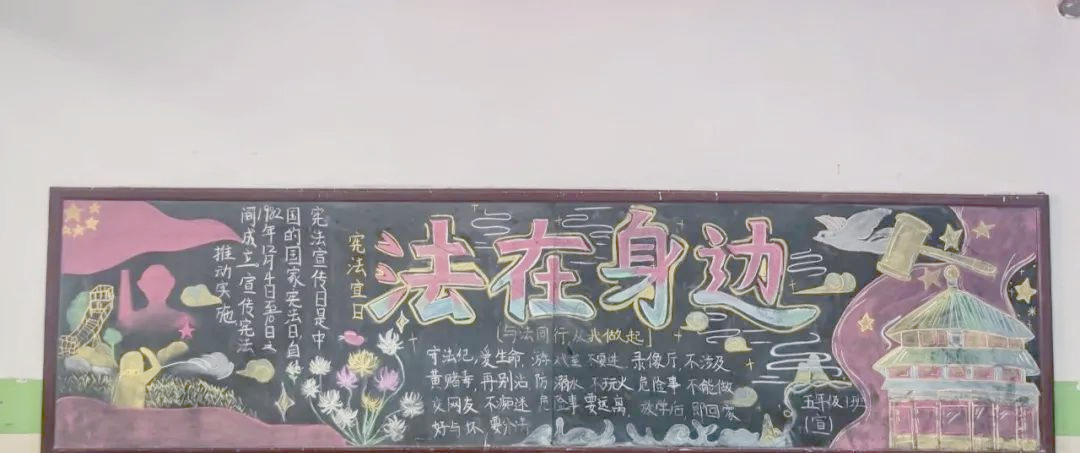 宪法宣传日是中
国的国家宪法日,自
1982年12月4日至10日之
间成立宣传宪法
推动实施
宪法宜日
法在身边
[与法同行从我做起]
守法纪,爱生命,游戏室 不要进 录像厅,不涉及
黄赌毒,再别沾 防溺水 不玩火 危险事 不能做
交网友 不痴迷 危险事要远离, 放学后 即回家
好与坏 要分清
五年级1班
(宣)